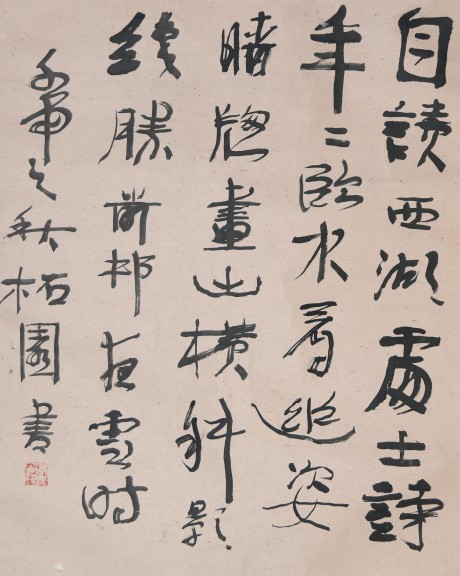 自讀西湖處士詩
年〻臨水看幽姿
晴窗畫出橫斜影
絕勝前邨夜雪时
之秋柘園書